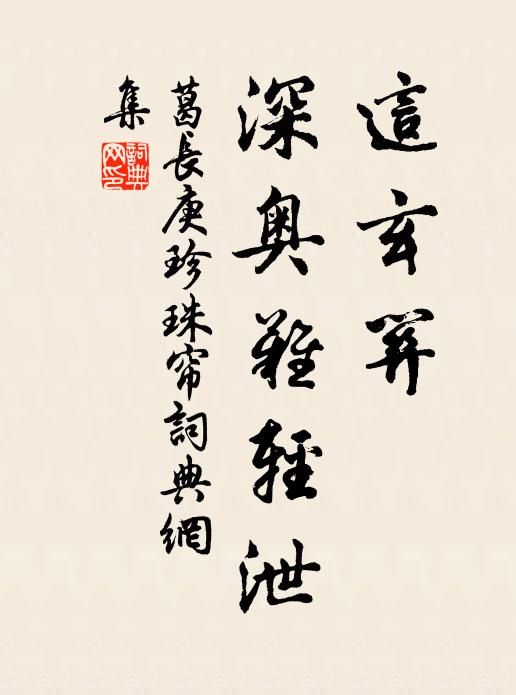 這玄關
深奧難輕泄
葛長庚珍珠帘詞典網
集
詞典網印